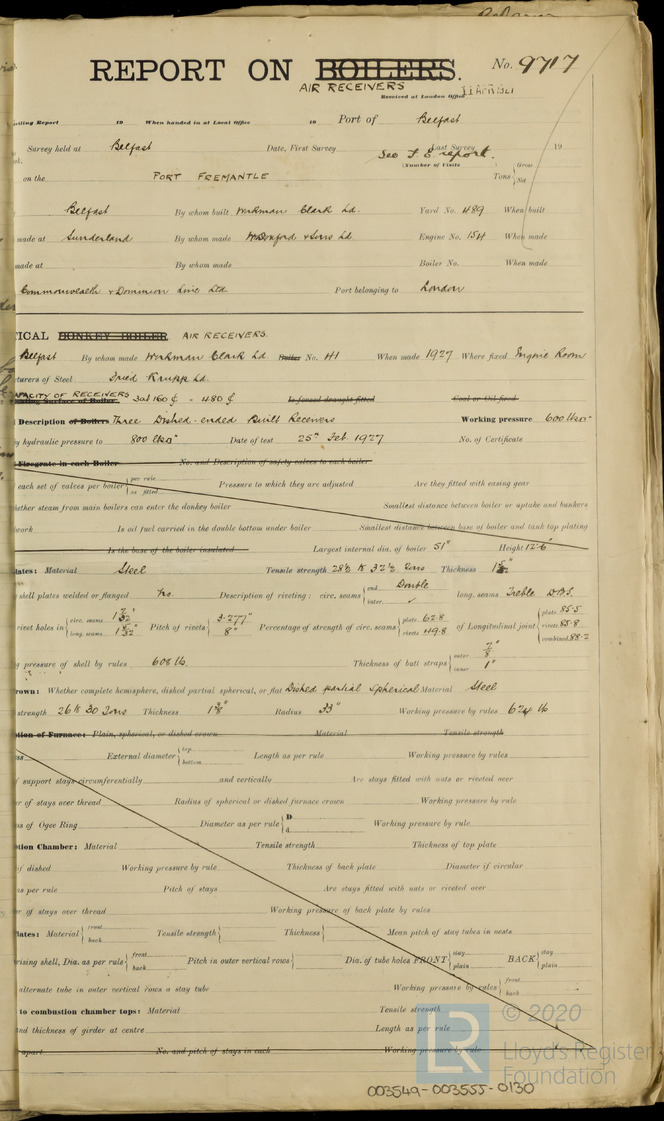 REPORT ON BOILERS. No. 9717
AIR RECEIVERS
Received at London Office 11 APR 1927
iting Report 19 When handed in at Local Office 19 Port of Belfast
Survey held at Belfast Date, First Survey Last Survey 19
See F. E report.
(Number of Visits
on the PORT FREMANTLE Tons { Gross
Net
Belfast By whom built Workman Clark Ld. Yard No. 489 When built
made at Sunderland By whom made W Doxford & Sons Ld Engine No. 154 When made
made at By whom made Boiler No. When made
Commonwealth & Dominion Line Ltd Port belonging to London
ICAL DONKEY BOILER. AIR RECEIVERS.
Belfast By whom made Workman Clark Ld Boiler No. 141 When made 1927 Where fixed Engine Room
cturers of Steel Fried Krupp Ld.
CAPACITY OF RECEIVERS 3 at 160 = 480 Is forced draught fitted Coal or Oil fired
Description of Boilers Three Dished-ended Built Receivers Working pressure 600 lbs
y hydraulic pressure to 800 lbs Date of test 25th Feb. 1927 No. of Certificate
Firegrate in each Boiler No. and Description of safety valves to each boiler
each set of valves per boiler { per rule
as fitted Pressure to which they are adjusted Are they fitted with easing gear
ether steam from main boilers can enter the donkey boiler Smallest distance between boiler or uptake and bunkers
work Is oil fuel carried in the double bottom under boiler Smallest distance between base of boiler and tank top plating
Is the base of the boiler insulated Largest internal dia. of boiler 51" Height 12'6"
lates: Material Steel Tensile strength 28½ to 32½ Tons Thickness
shell plates welded or flanged No. Description of riveting: circ. seams { end Double
inter. ✓ long. seams Treble D.B.S.
rivet holes in { circ. seams
long. seams Pitch of rivets { 3.277"
8" Percentage of strength of circ. seams { plate 62.8
rivets 49.8 of Longitudinal joint { plate 85.5
rivets 85.8
combined 88.2
g pressure of shell by rules 608 lb. Thickness of butt straps { outer 7/8"
inner 1"
rown: Whether complete hemisphere, dished partial spherical, or flat Dished partial spherical Material Steel
strength 26 to 30 Tons Thickness 1⅜" Radius 33" Working pressure by rules 624 lb
tion of Furnace: Plain, spherical, or dished crown Material Tensile strength
ss External diameter { top
bottom Length as per rule Working pressure by rules
f support stays circumferentially and vertically Are stays fitted with nuts or riveted over
er of stays over thread Radius of spherical or dished furnace crown Working pressure by rule
ss of Ogee Ring Diameter as per rule { D
d Working pressure by rule
tion Chamber: Material Tensile strength Thickness of top plate
if dished Working pressure by rule Thickness of back plate Diameter if circular
as per rule Pitch of stays Are stays fitted with nuts or riveted over
er of stays over thread Working pressure of back plate by rules
lates: Material { front
back Tensile strength { Thickness { Mean pitch of stay tubes in nests
rising shell, Dia. as per rule { front
back Pitch in outer vertical rows { Dia. of tube holes FRONT { stay
plain BACK { stay
plain
alternate tube in outer vertical rows a stay tube Working pressure by rules { front
back
to combustion chamber tops: Material Tensile strength
nd thickness of girder at centre Length as per rule
apart No. and pitch of stays in each Working pressure by rule
LR © 2020
Lloyd's Register
Foundation
003549-003555-0130